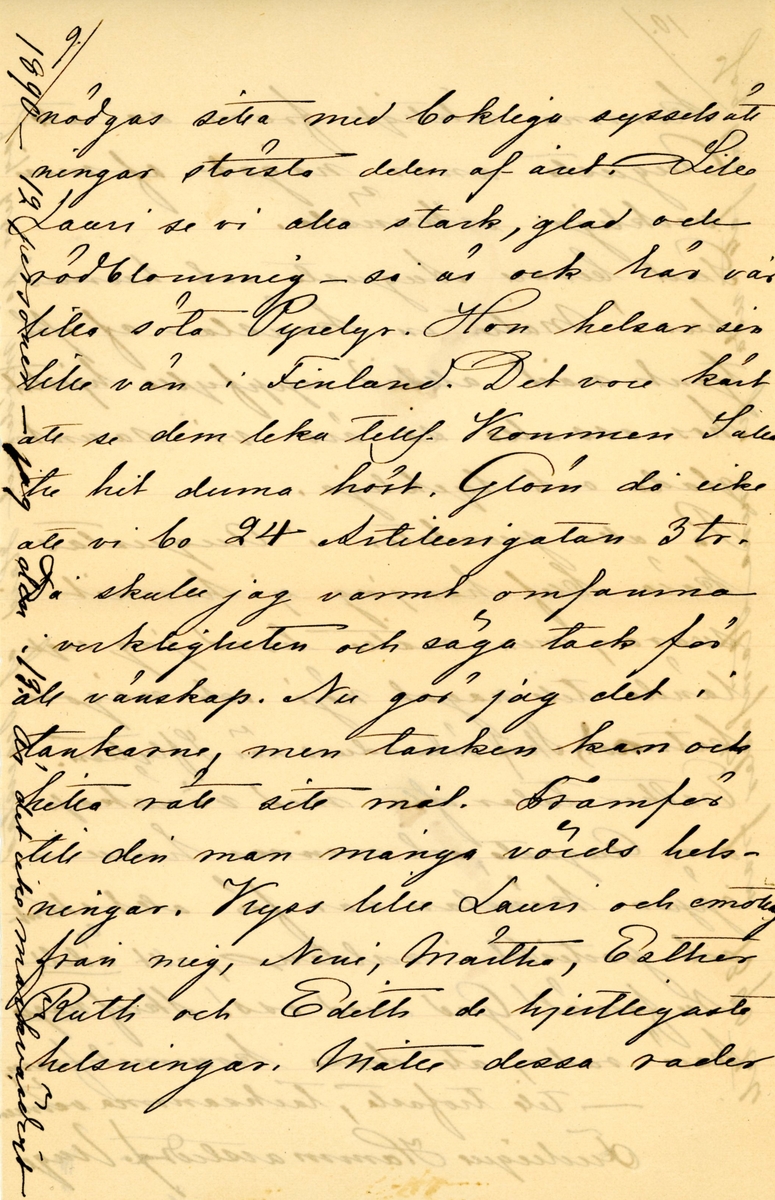 9.)
nödgas sitta med bokliga sysselsätt
ningar största delen af året. Lille
Lauri se vi alla stark, glad och
rödblommig – så är ock här vår
lilla söta Pyrelyr. Hon helsar sin
lille vän i Finland. Det vore kärt
att se dem leka tills. Kommen
hit denna höst. Glöm då icke
att vi bo 24 Artillerigatan 3 tr.
Då skulle jag varmt omfamna
i verkligheten och säga tack för
all vänskap. Nu gör jag det i
tankarne, men tanken kan och
hitta rätt sitt mål. Framför
till din man många vörds hels-
ningar. Kyss lille Lauri och emottag
från mig, Nini, Märtha, Esther
Ruth och Edith de hjertligaste
helsningar. Måtte dessa rader
1890 – 12 personer – jag den 13. är det icke märkvärdigt